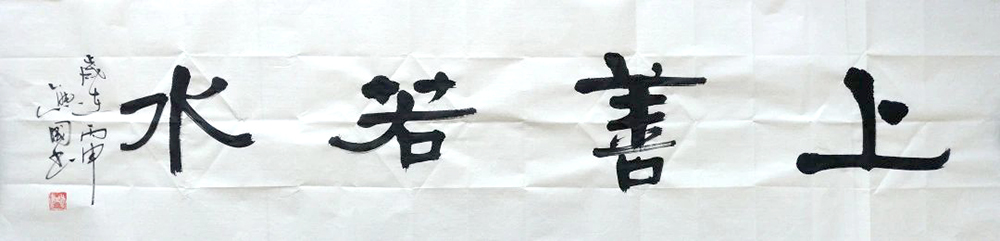 上善若水
歲在丙申
興國书